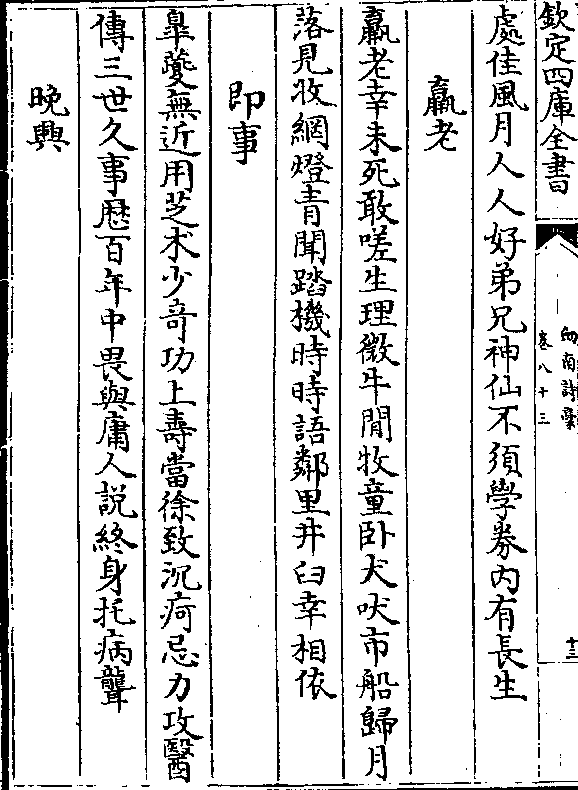 欽定四庫全書
劍南詩藁
卷八十三
十三
處佳風月人人好弟兄神仙不須學券内有長生
羸老
羸老幸未死敢嗟生理微牛閒牧童卧犬吠市船歸月
落見收網燈青聞踏機時時語鄰里井臼幸相依
即事
臯夔無近用芝术少竒功上壽當徐致沉疴忌力攻醫
傳三世久事歴百年中畏與庸人説終身托病聾
晚興